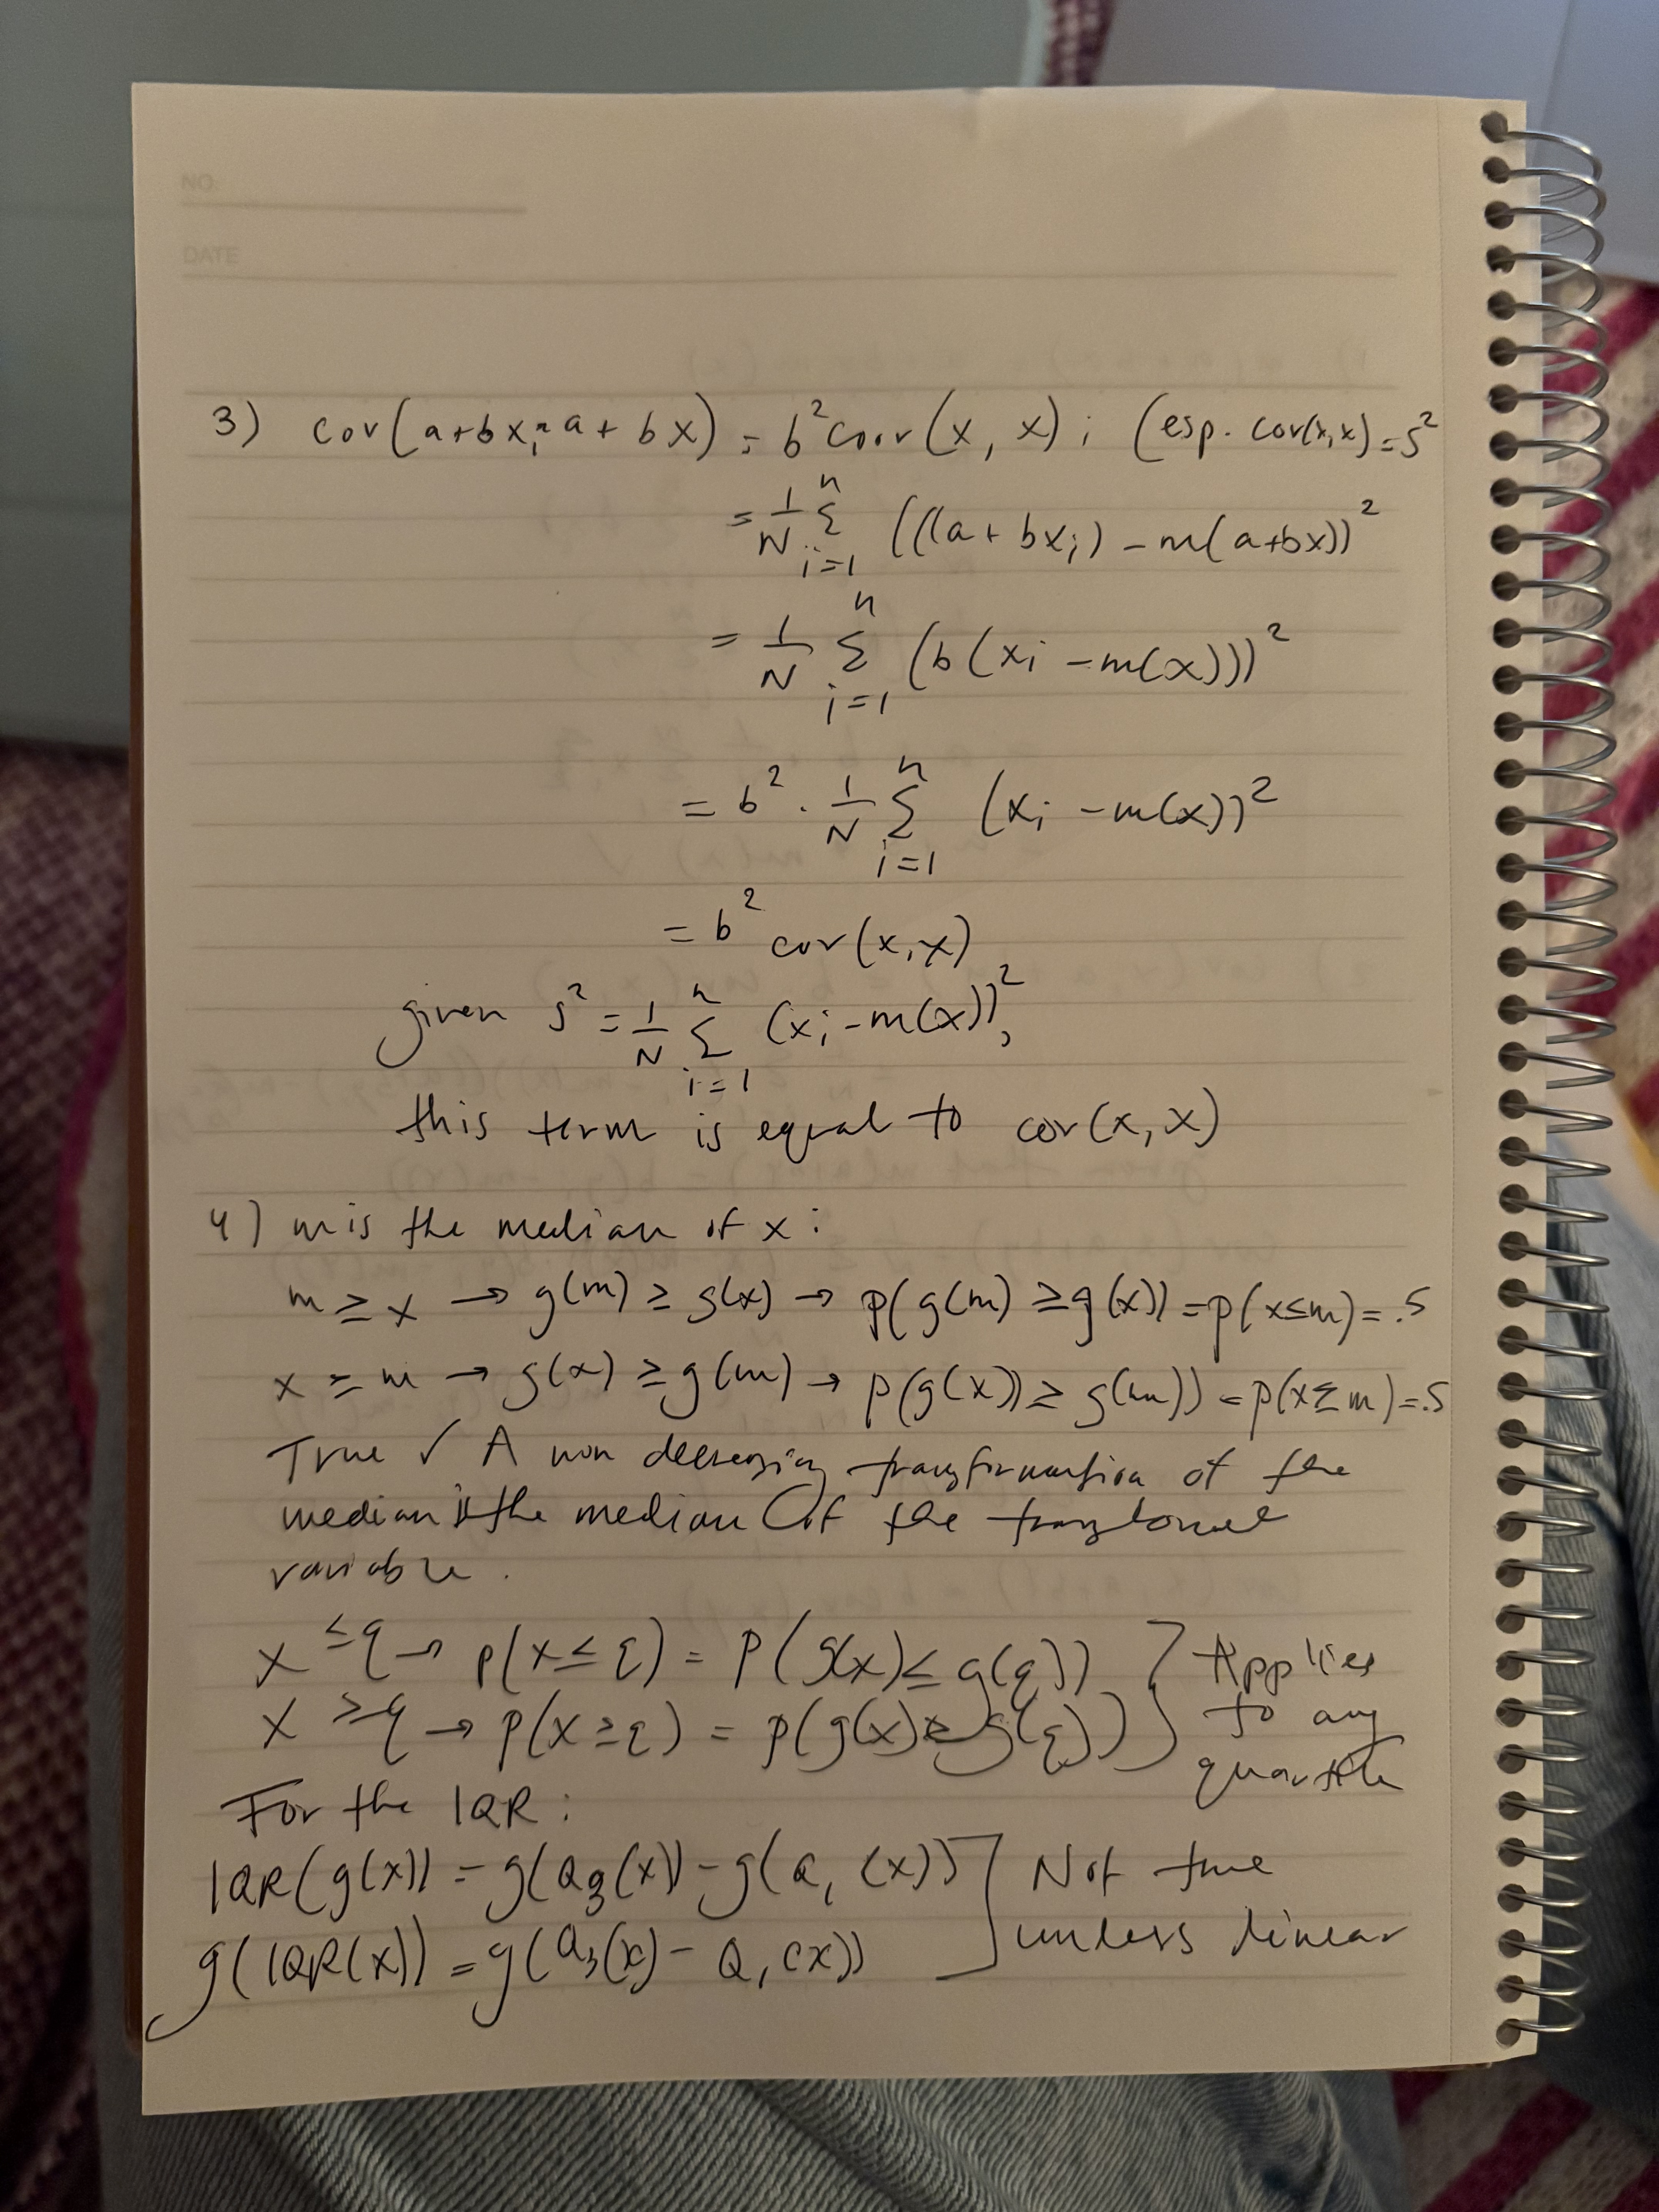 NO:
DATE
3) cov(a+bx, a+bx) = b² cov(x, x); (esp. cov(x,x) = s²
= 1/N Σ_{i=1}^{n} (((a+bx_i) - m(a+bx))²
= 1/N Σ_{i=1}^{n} (b(x_i - m(x)))²
= b² · 1/N Σ_{i=1}^{n} (x_i - m(x))²
= b² cov(x,x)
given s² = 1/N Σ_{i=1}^{n} (x_i - m(x))²,
this term is equal to cov(x,x)
4) m is the median of x:
m ≥ x → g(m) ≥ g(x) → p(g(m) ≥ g(x)) = p(x≤m) = .5
x ≥ m → g(x) ≥ g(m) → p(g(x)) ≥ g(m)) = p(x≥m) = .5
True ✓ A non decreasing transformation of the
median is the median of the transformed
variable.
x ≤ q → p(x ≤ q) = p(g(x) ≤ g(q)) ] Applies
x ≥ q → p(x ≥ q) = p(g(x) ≥ g(q)) ] to any
quantile
For the IQR:
IQR(g(x)) = g(Q₃(x)) - g(Q₁(x)) ] Not true
g(IQR(x)) = g(Q₃(x) - Q₁(x)) ] unless linear